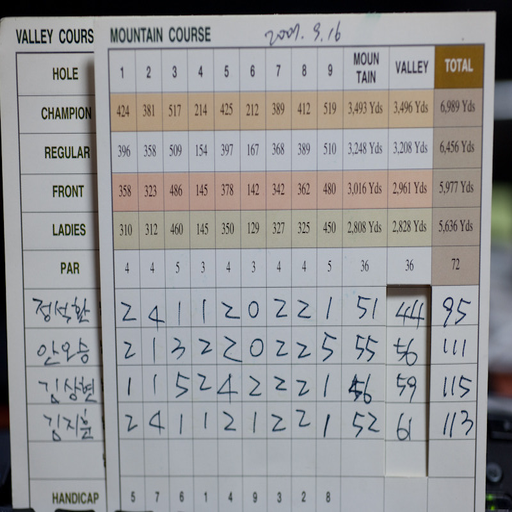 VALLEY COURS MOUNTAIN COURSE 2007. 9. 16
HOLE 1 2 3 4 5 6 7 8 9 MOUN TAIN VALLEY TOTAL
CHAMPION 424 381 517 214 425 212 389 412 519 3,493 Yds 3,496 Yds 6,989 Yds
REGULAR 396 358 509 154 397 167 368 389 510 3,248 Yds 3,208 Yds 6,456 Yds
FRONT 358 323 486 145 378 142 342 362 480 3,016 Yds 2,961 Yds 5,977 Yds
LADIES 310 312 460 145 350 129 327 325 450 2,808 Yds 2,828 Yds 5,636 Yds
PAR 4 4 5 3 4 3 4 4 5 36 36 72
정석환 2 4 1 1 2 0 2 2 1 51 44 95
안오승 2 1 3 2 2 0 2 2 5 55 56 111
김상현 1 1 5 2 4 2 2 2 1 56 59 115
김지훈 2 4 1 1 2 1 2 2 1 52 61 113
HANDICAP 5 7 6 1 4 9 3 2 8